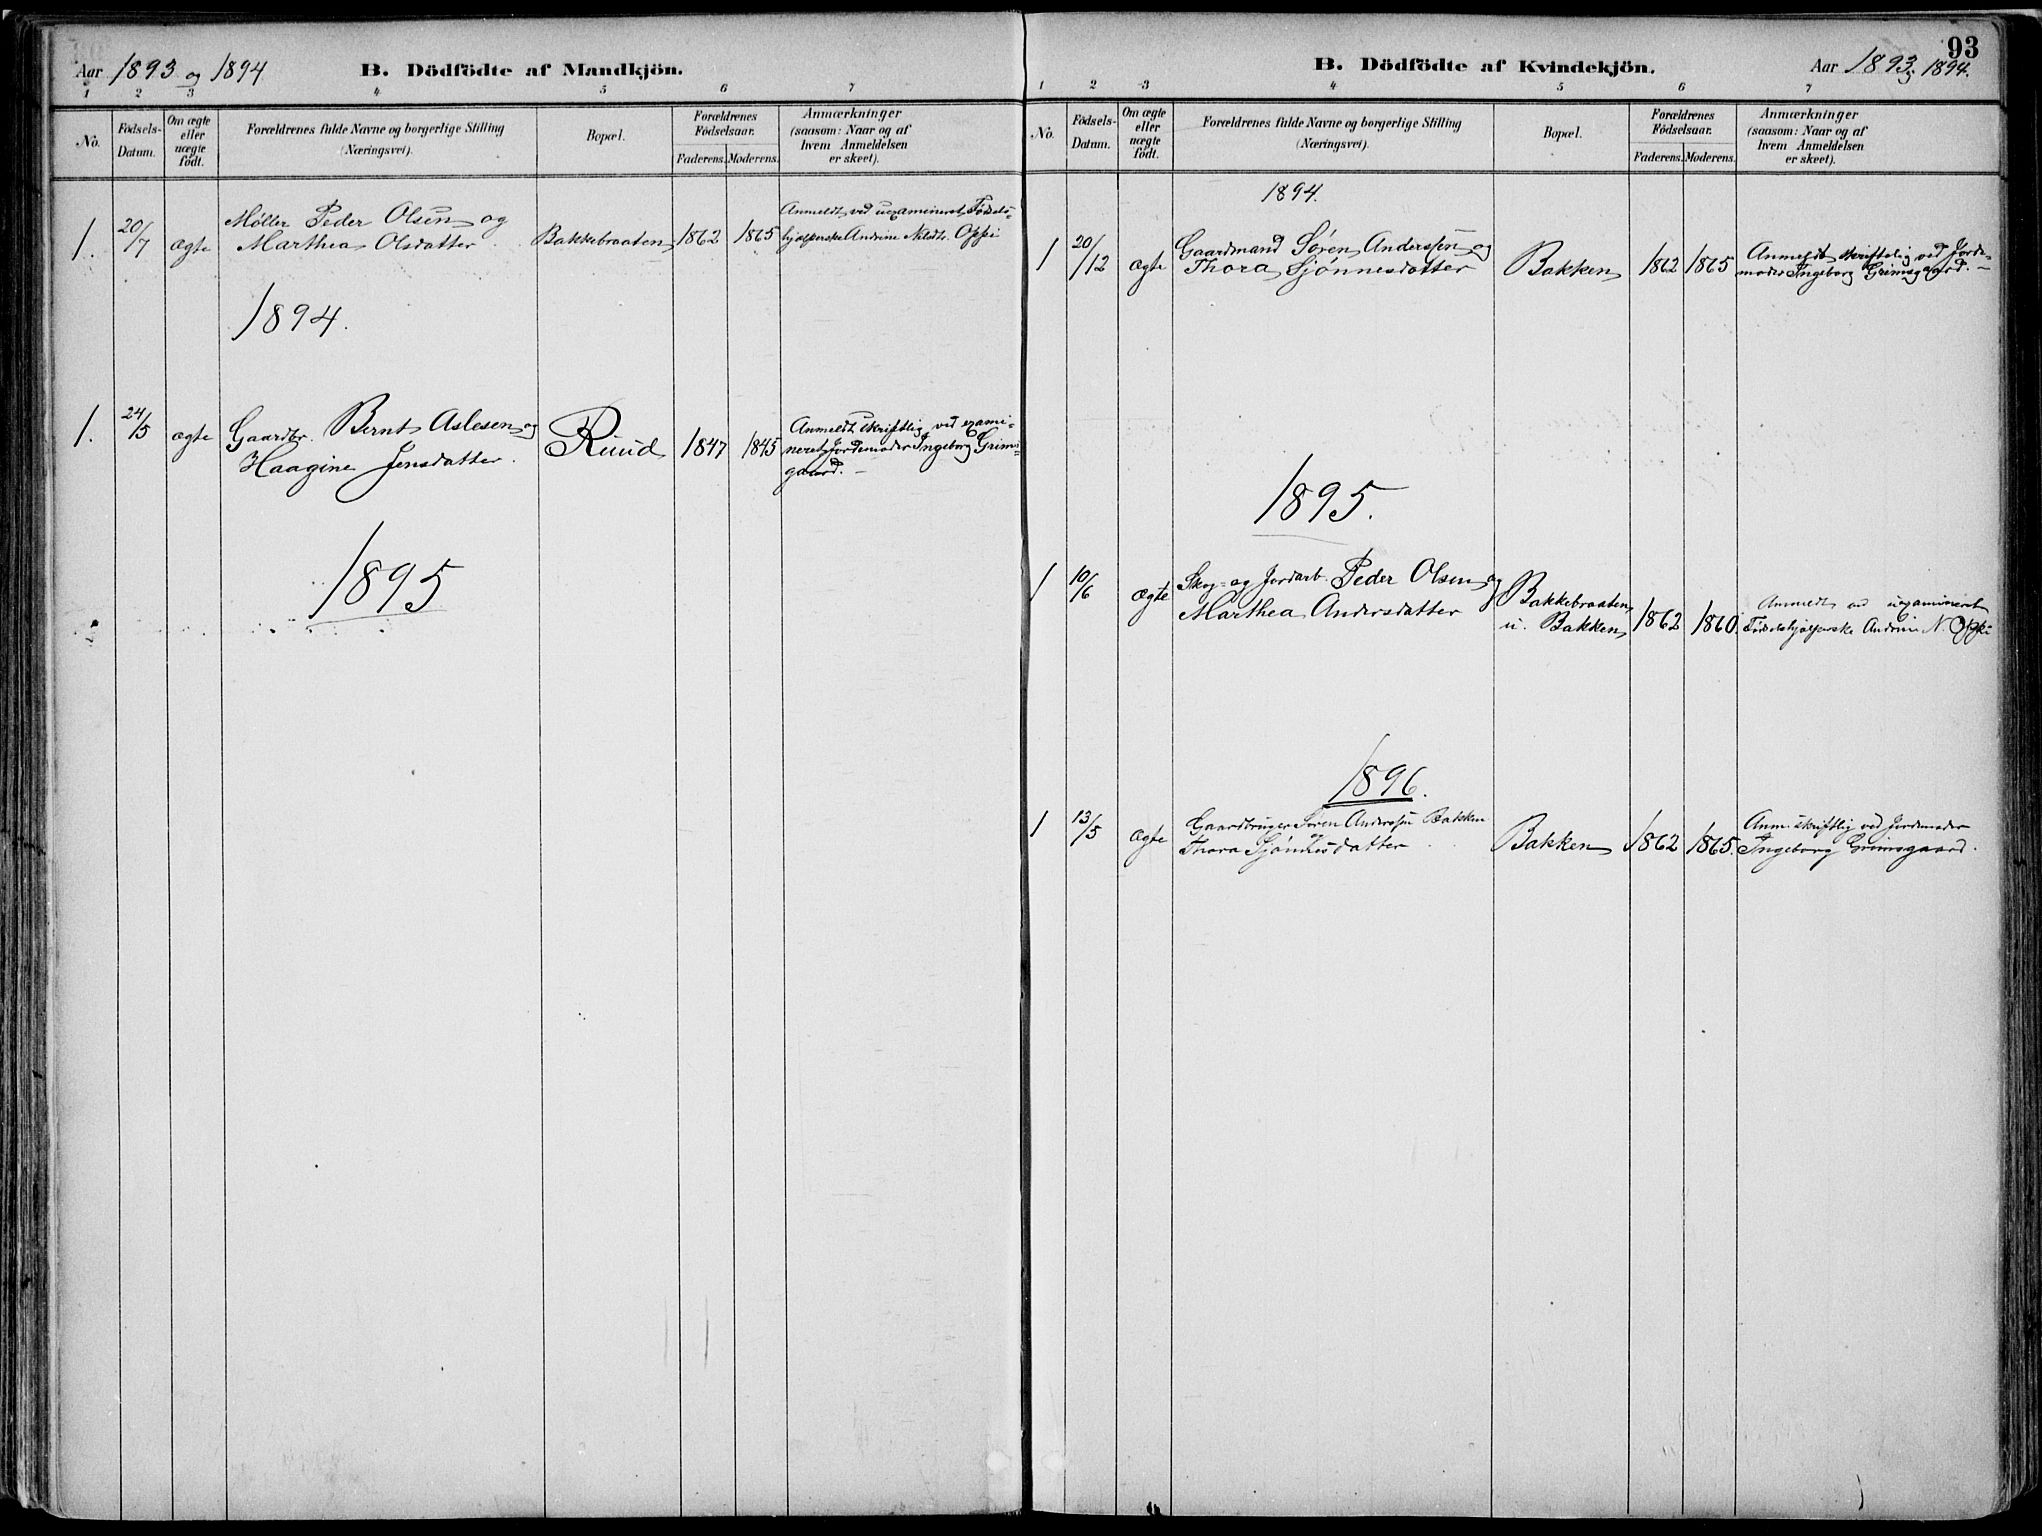 Aar 1893 og 1894
B. Dödfödte af Mandkjön.
1 2 3 4 5 6 7
No.
Födsels-
Datum.
Om ægte
eller
uægte
födt.
Forældrenes fulde Navne og borgerlige Stilling
(Næringsvei).
Bopæl.
Forældrenes
Födselsaar.
Faderens. Moderens.
Anmærkninger
(saasom: Naar og af
hvem Anmeldelsen
er skeet).
1. 20/7 ægte Møller Peder Olsen og
Marthea Olsdatter. Bakkebraaten 1862 1865 Anmeldt ved uexamineret Fødsels-
hjælperske Andrine Nilsdtr. Oppi
1894.
1. 24/5 ægte Gaardbr. Bernt Aslesen og
Haagine Jensdatter. Ruud 1847 1845 Anmeldt skriftlig ved exami-
neret Jordemoder Ingeborg Grims-
gaard. –
1895
93
B. Dödfödte af Kvindekjön.
Aar 1893 og 1894.
1 2 3 4 5 6 7
No.
Födsels-
Datum.
Om ægte
eller
uægte
födt.
Forældrenes fulde Navne og borgerlige Stilling
(Næringsvei).
Bopæl.
Forældrenes
Födselsaar.
Faderens. Moderens.
Anmærkninger
(saasom: Naar og af
hvem Anmeldelsen
er skeet).
1894.
1 20/12 ægte Gaardmand Søren Anderssen og
Thora Sjønnesdatter Bakken 1862 1865 Anmeldt skriftelig ved Jorde-
moder Ingeborg Grimsgaard. –
1895.
1 10/6 ægte Skog- og Jordarb. Peder Olsen og
Marthea Andersdatter Bakkebraaten
u. Bakken 1862 1860. Anmeldt ved uexamineret
Fødselshjælperske Andrine N. Oppi
1896.
1 13/5 ægte Gaardbruger Søren Anderssen Bakken
og
Thora Sjønnesdatter Bakken 1862 1865. Anm. skriftlig ved Jordemoder
Ingeborg Grimsgaard.